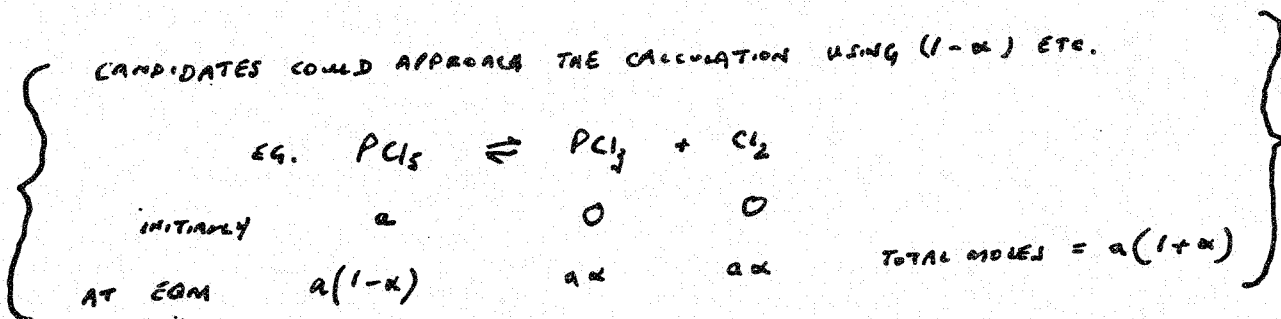 CANDIDATES COULD APPROACH THE CALCULATION USING (1-α) ETC.
EG. PCl5 ⇌ PCl3 + Cl2
INITIALLY a 0 0
AT EQM a(1-α) aα aα TOTAL MOLES = a(1+α)